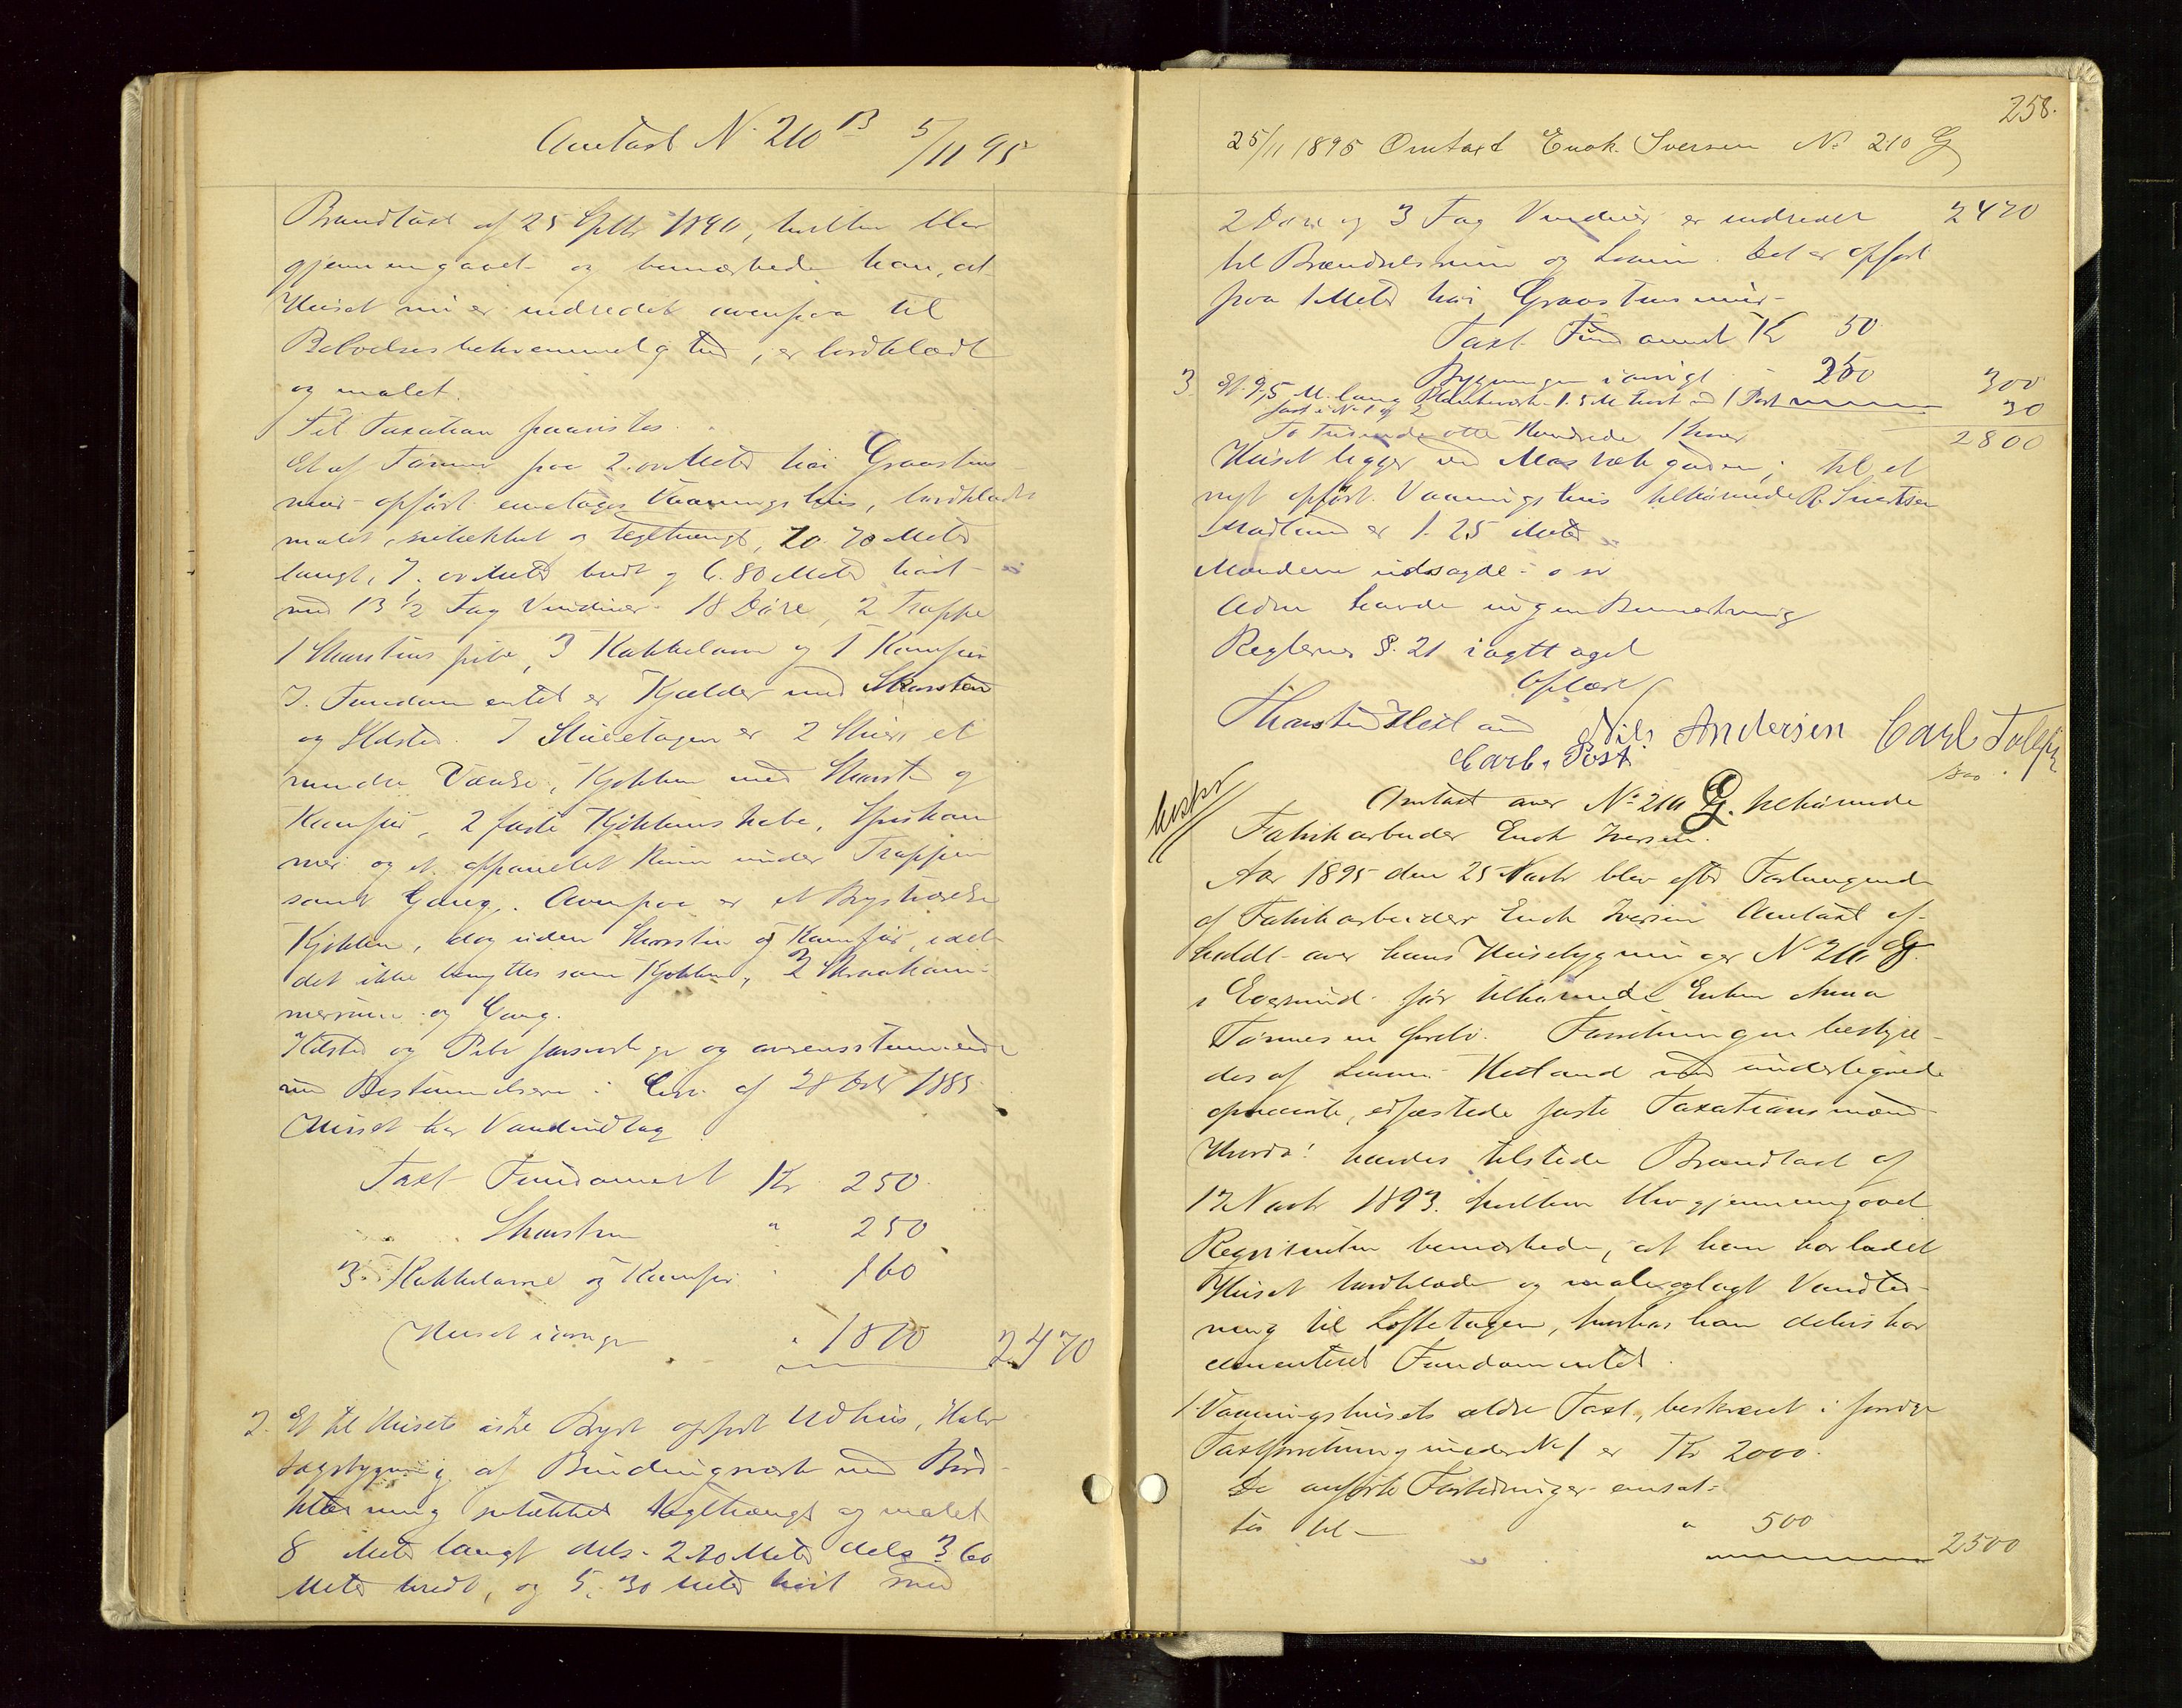 Omtaxt N. 210 B 5/11 95
Brandtaxt af 25 Septbr 1890, hvilken blev
gjennemgaaet og bemærkede han, at
Huset nu er indredet ovenpaa til
Beboelsesbekvemmelighed, er bordklædt
og malet.
Til Taxation paavistes.
Et af Tømmer paa 2.00 Meter høi Graastens
mur opført enetages Vaaningshus, bordklædt
malet, og teglhængt, 10.70 Meter
langt, 7.00 Meter bredt og 6.80 Meter høit
med 13 1/2 Fag Vinduer 18 Døre, 2 Trappe
1 Skorstens pibe, 3 Kakkelovne og 1 Komfur
I Fundamentet er Kjælder med Skorsten
og Ildsted. I Stueetagen er 2 Stuer et
mindre Værelse, Kjøkken med Skorsten og
Komfur, 2 faste Kjøkkenskabe, Spiskam
mer og et oppanelet Rum under Trappen
samt Gang. Ovenpaa er et Værelse
Kjøkken, dog uden Skorsten og Komfur, idet
det ikke benyttes som Kjøkken, 2
og Gang.
Ildsted og Pibe forsvarlige og overensstemmende
med Bestemmelserne i Circ. af 28 Octbr 1885
Huset har Vandindlag
Taxt Fundament Kr 250
Skorsten " 250
3 Kakkelovne og Komfur " 160
Huset iøvrigt " 1810 2470
2. Et til Husets østre opført Udhus, Halv
tagsbygning af Bindingsværk med Bord
klædning teglhængt og malet
8 Meter langt dels 2.20 Meter dels 3.60
Meter bredt, og 5.30 Meter høit med
258.
25/11 1895 Omtaxt Enok Iversen No 210 G
2 Døre og 3 Fag Vinduer er indredet 2470
til Brændselsrum og Det er opført
paa 1 Meter høi Graastensmur
Taxt Fundament Kr 50
Bygningen iøvrigt - 250 300
3 Et 9,5 M. lang Plankeværk 1.5 M høit med 1 Port 30
fast i No 1 og 2
To Tusinde otte Hundrede Kroner 2800
Huset ligger ved gaden; til et
nyt opført Vaaningshus tilhørende R. Sivertsen
Madland er 1.25 Meter
Mændene udsagde: o sv
havde ingen Bemærkning
Reglernes §. 21 iagttaget
Oplæst
Thorsten Hetland Nils Andersen Carl Tollefs
Carl. Post. søn.
Omtaxt over No 210 G. tilhørende
Fabrikarbeider Enok Iversen.
Aar 1895 den 25 Novbr blev efter Forlangende
af Fabrikarbeider Enok Iversen Omtaxt af-
holdt over hans Husebygninger No 210 G.
i Egersund før tilhørende Enken Anna
Tønnesen Forretningen bestyre-
des af Hetland med undertegnede
opnævnte, edfæstede faste Taxationsmænd
Hvorda! havdes tilstede Brandtaxt af
17 Novbr 1893. hvilken blev gjennemgaaet
Reqvirenten bemærkede, at han har ladet
Huset bordklæde og male, indlagt Vandled-
ning til Loftetagen, hvorhos han delvis har
cementeret Fundamentet.
1. Vaaningshusets ældre Taxt, beskrevet i forrige
Taxtforretning under No 1 er Kr 2000.
De anførte Forbedringer ansæt-
tes til " 500
2500